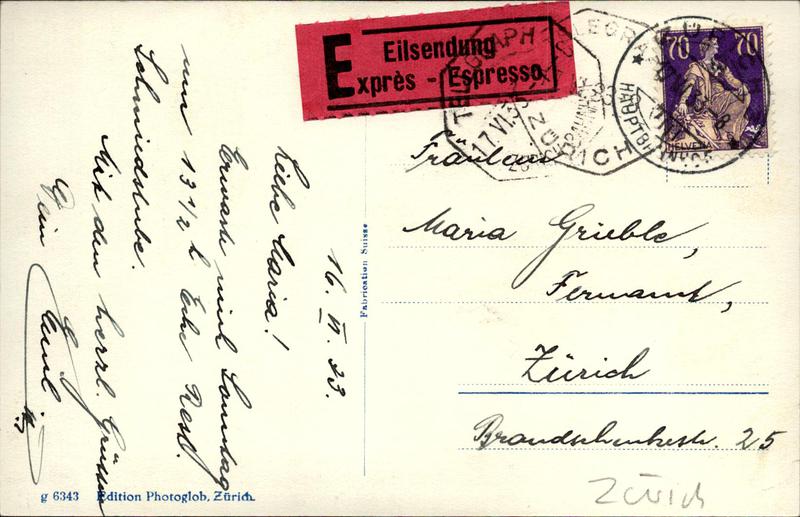 Eilsendung
Exprès - Espresso
70 70
HELVETIA
TELEGRAPH
17.VI.33
ZÜRICH
16. VI. 33.
Liebe Maria!
Erwarte mich Sonntag
um 13 1/2 h Ecke Rest.
Schmiedstube.
Mit den herzl. Grüssen
Dein
Emil
Fräulein
Maria Grieble,
Fernamt,
Zürich
Brandschenkestr. 25
Zürich
Fabrication Suisse
g 6343 Edition Photoglob, Zürich.